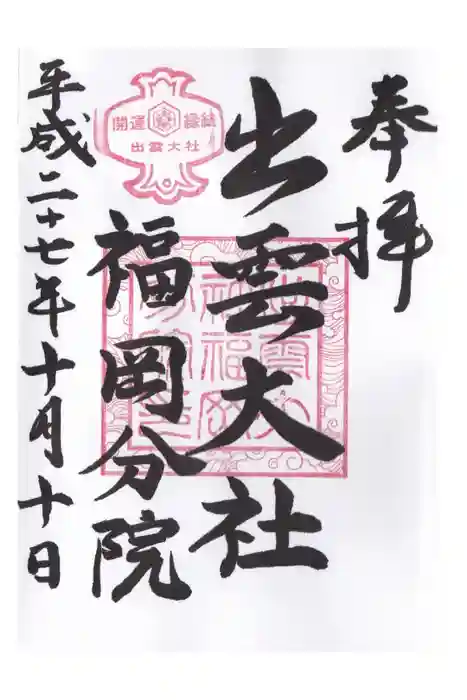 奉拝
出雲大社
福岡分院
平成二十七年十月十日
開運 縁結
出雲大社